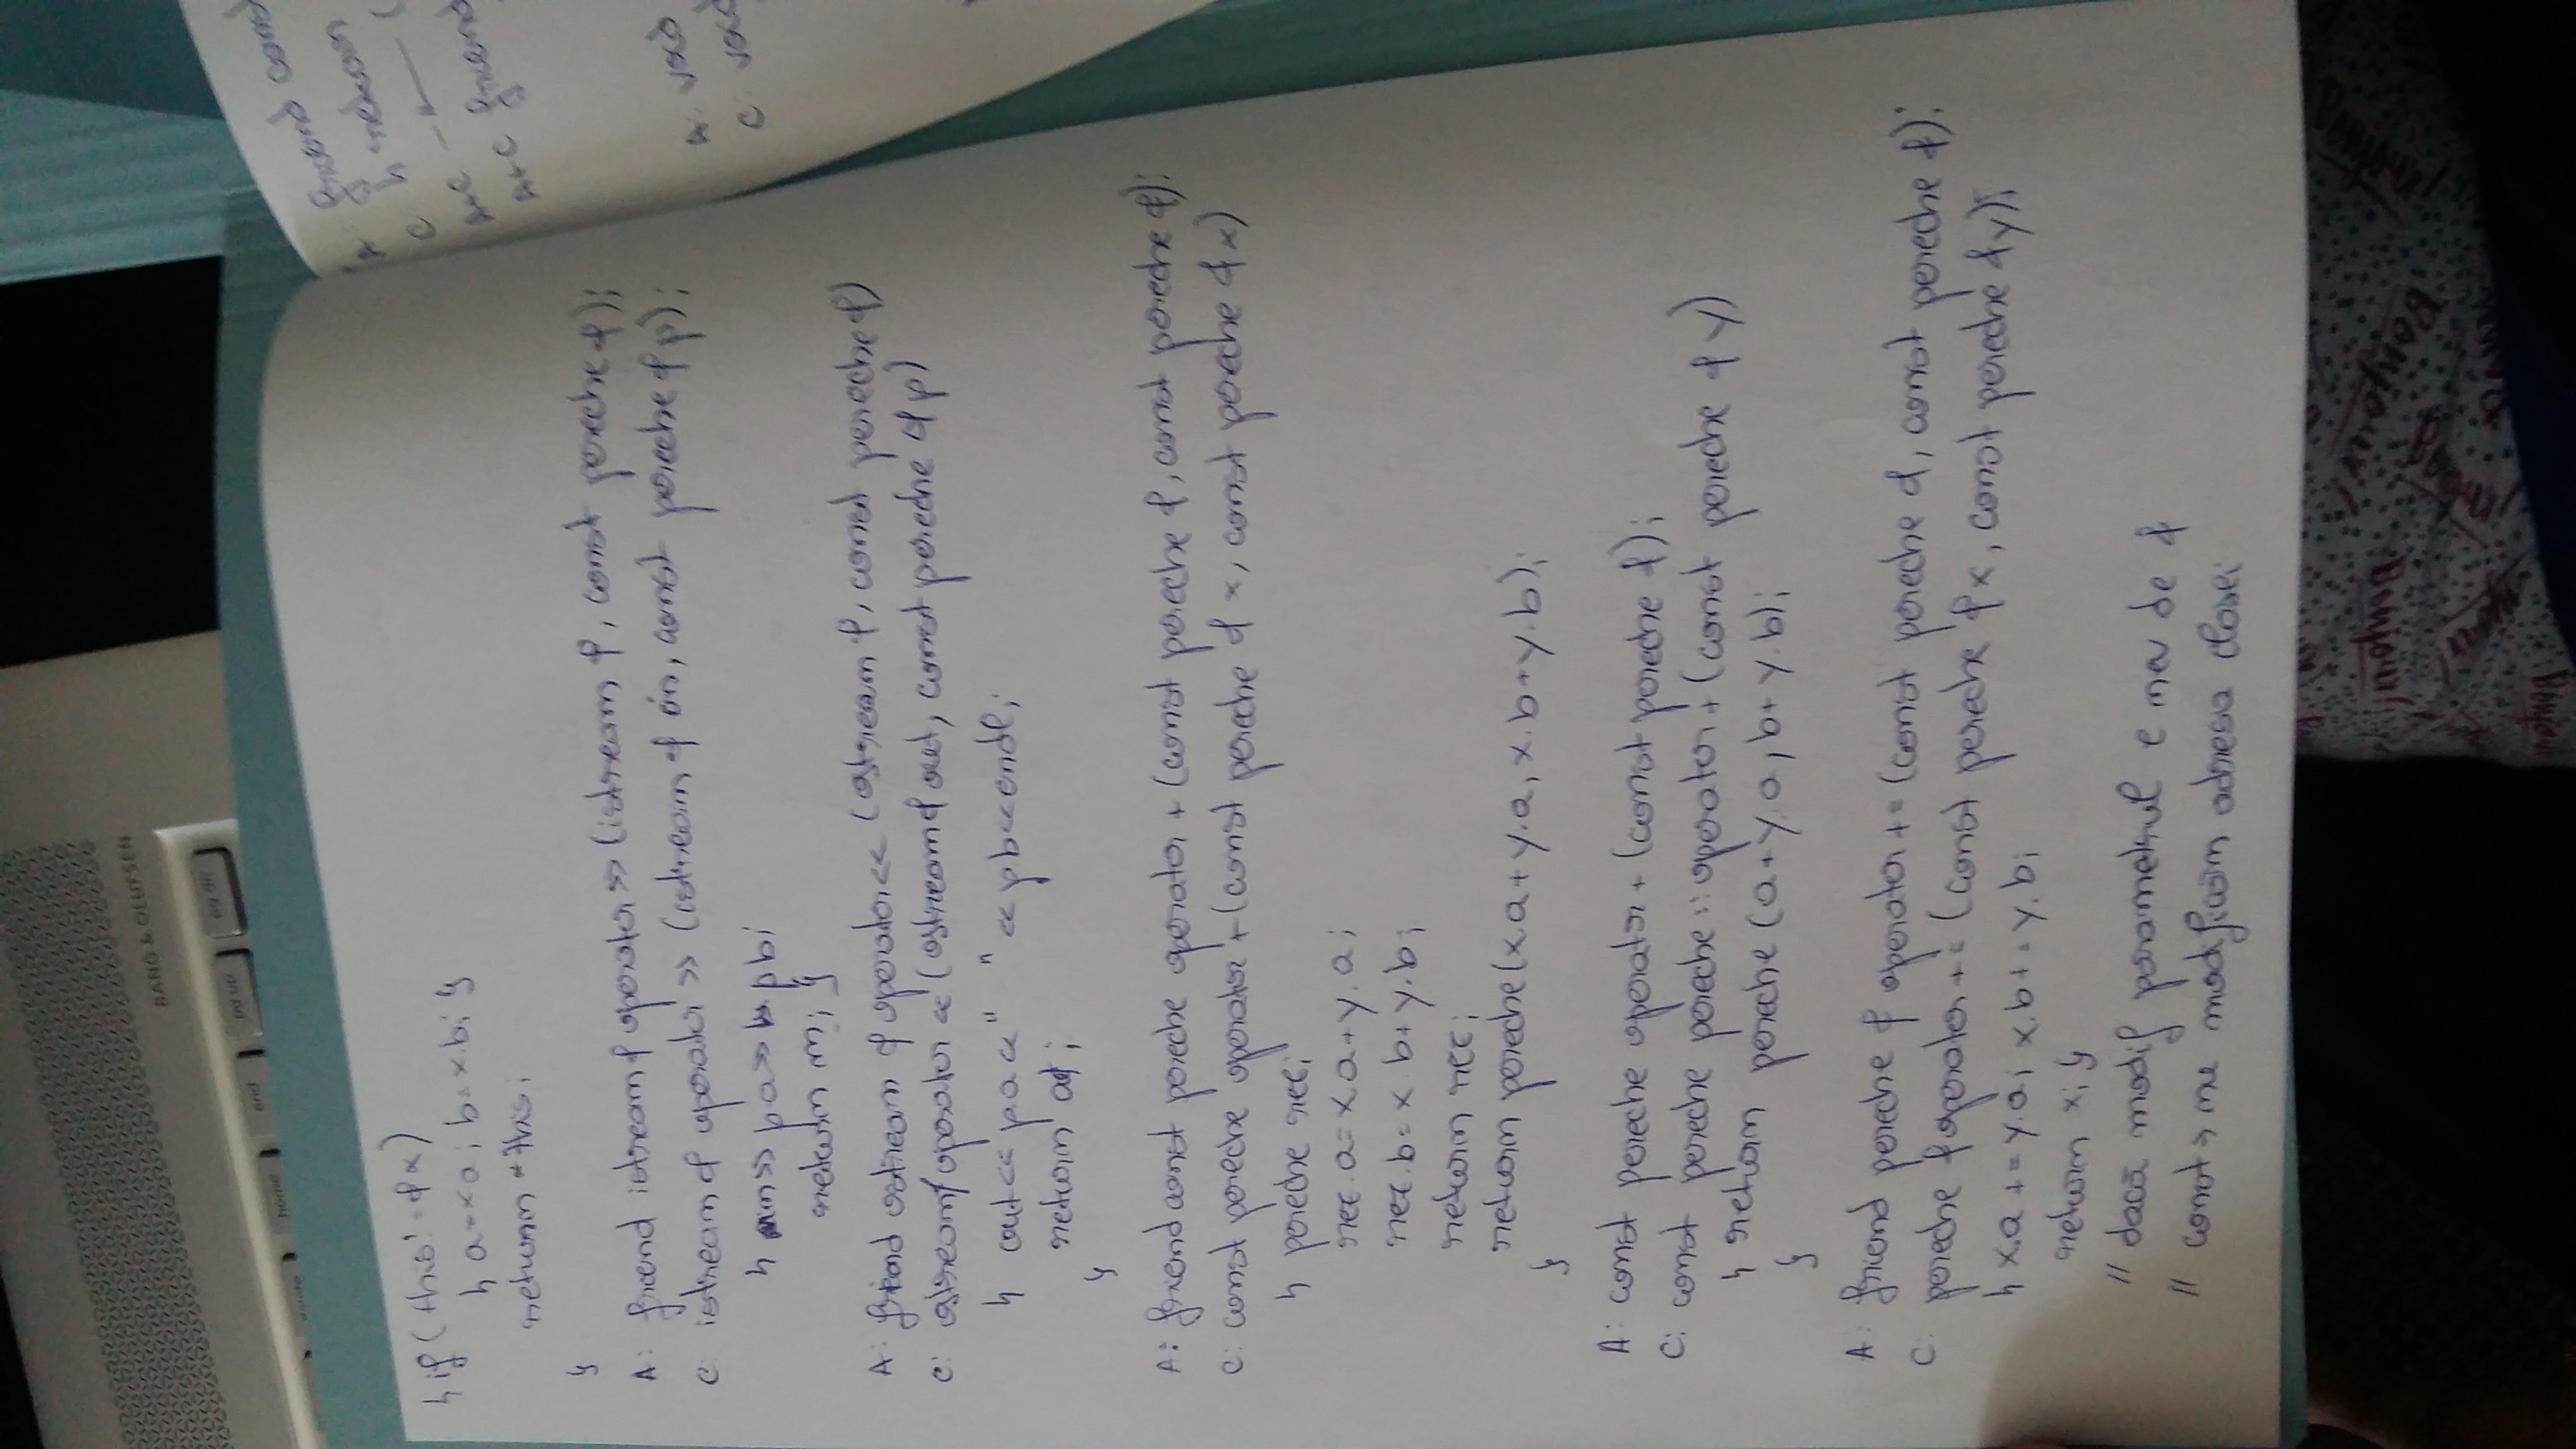 { if (this != &x)
{ a = x.a; b = x.b; }
return *this;
}
A: friend istream & operator >> (istream &, const pereche &);
C: istream & operator >> (istream & in, const pereche & p);
{ in >> p.a >> p.b;
return in; }
A: friend ostream & operator << (ostream &, const pereche &)
C: ostream & operator << (ostream & out, const pereche & p)
{ out << p.a << " " << p.b << endl;
return out;
}
A: friend const pereche operator + (const pereche &, const pereche &);
C: const pereche operator + (const pereche & x, const pereche & x)
{ pereche rez;
rez.a = x.a + y.a;
rez.b = x.b + y.b;
return rez;
return pereche (x.a + y.a, x.b + y.b);
}
A: const pereche operator + (const pereche &);
C: const pereche pereche :: operator + (const pereche & y)
{ return pereche (a + y.a, b + y.b);
}
A: friend pereche & operator += (const pereche &, const pereche &);
C: pereche & operator += (const pereche & x, const pereche & y);
{ x.a += y.a; x.b += y.b;
return x; }
// dacă modif parametrul e nev de &
// const → ne modificăm adresa clasei
BANG & OLUFSEN
home
end
pg up
pg dn
Bonjour!
friend const
{ return
C
A+C
A+C friend
A: void
C: void